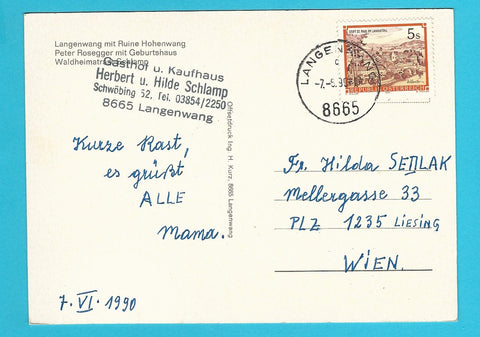 Langenwang mit Ruine Hohenwang
Peter Rosegger mit Geburtshaus
Waldheimat
Gasthof u. Kaufhaus
Herbert u. Hilde Schlamp
Schwöbing 52, Tel. 03854/2250
8665 Langenwang
Offsetdruck Ing. H. Kurz, 8665 Langenwang
5s
REPUBLIK ÖSTERREICH
LANGENWANG
8665
Kurze Rast,
es grüßt
ALLE
Mama.
7. VI. 1990
Fr. Hilda SEDLAK
Mellergasse 33
PLZ 1235 LIESING
WIEN.